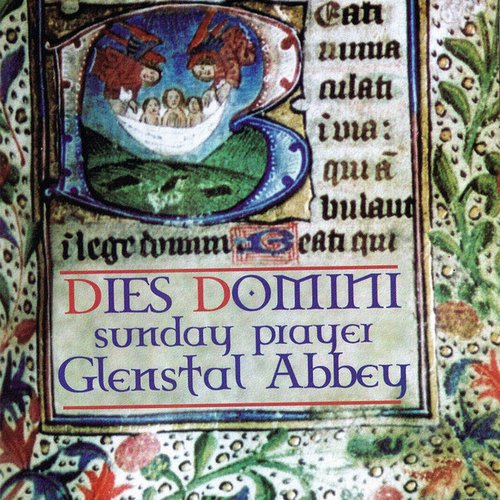 Eati
imma
culati
i via:
qui ā
bulant
i lege domini Beati qui
DIES DOMINI
sunday prayer
Glenstal Abbey